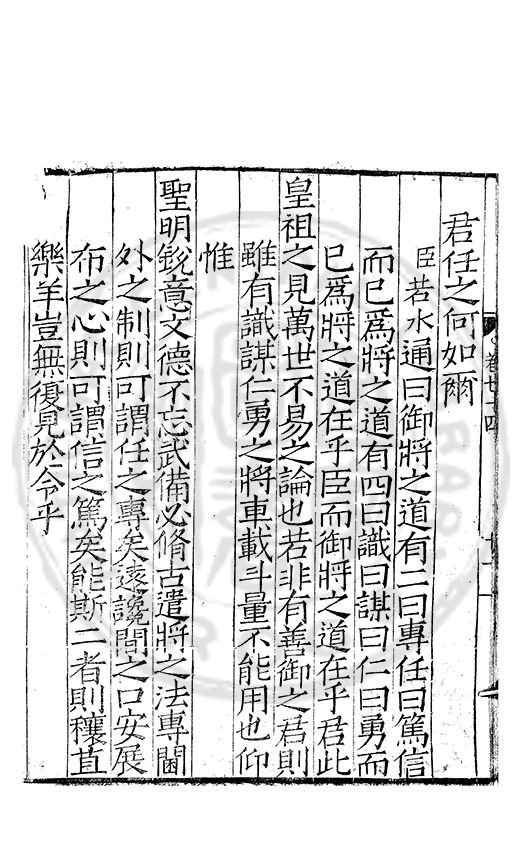 君任之何如爾
臣若水通曰御將之道有二曰專任曰篤信
而已爲將之道有四曰識曰謀曰仁曰勇而
已爲將之道在乎臣而御將之道在乎君此
皇祖之見萬世不易之論也若非有善御之君則
雖有識謀仁勇之將車載斗量不能用也仰
惟
聖明銳意文德不忘武備必脩古遣將之法專閫
外之制則可謂任之專矣遠讒間之口安展
布之心則可謂信之篤矣能斯二者則穰苴
樂羊豈無復見於今乎
卷廿四